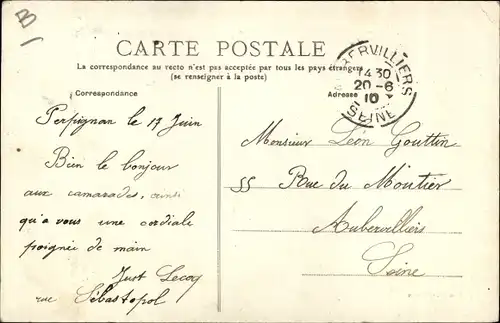 B
CARTE POSTALE
La correspondance au recto n'est pas acceptée par tous les pays étrangers
(se renseigner à la poste)
Correspondance
Adresse
BERVILLIERS
14 30
20-6
10
SEINE
Perpignan le 17 Juin
Bien le bonjour
aux camarades, ainsi
qu'a vous une cordiale
poignée de main
Just Lecoq
rue Sébastopol
Monsieur Léon Gouttin
55 Rue du Moutier
Aubervilliers
Seine